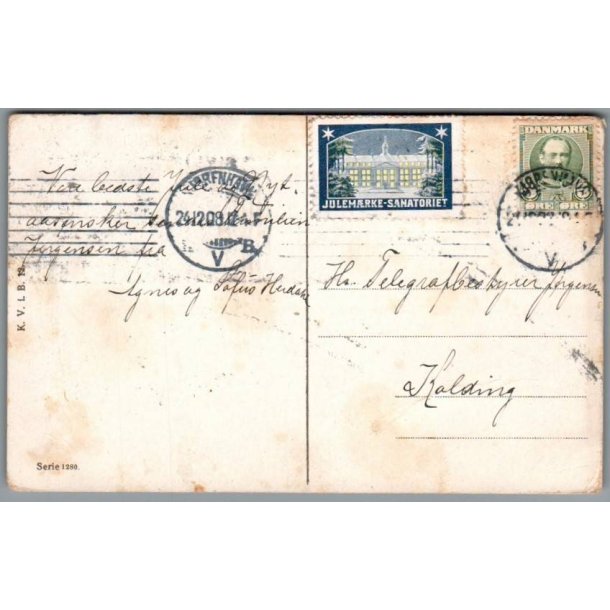 JULEMÆRKE-SANATORIET
DANMARK
ØRE ØRE
KJØBENHAVN
24.12.08.12-1 E
V B
KJØBENHAVN
V
Vore bedste Jule og Nyt-
aarsønsker Familien
Jørgensen fra
Agnes og Sofus
Hr. Telegrafbestyrer Jørgensen
Kolding
K. V. i. B. 12
Serie 1280.